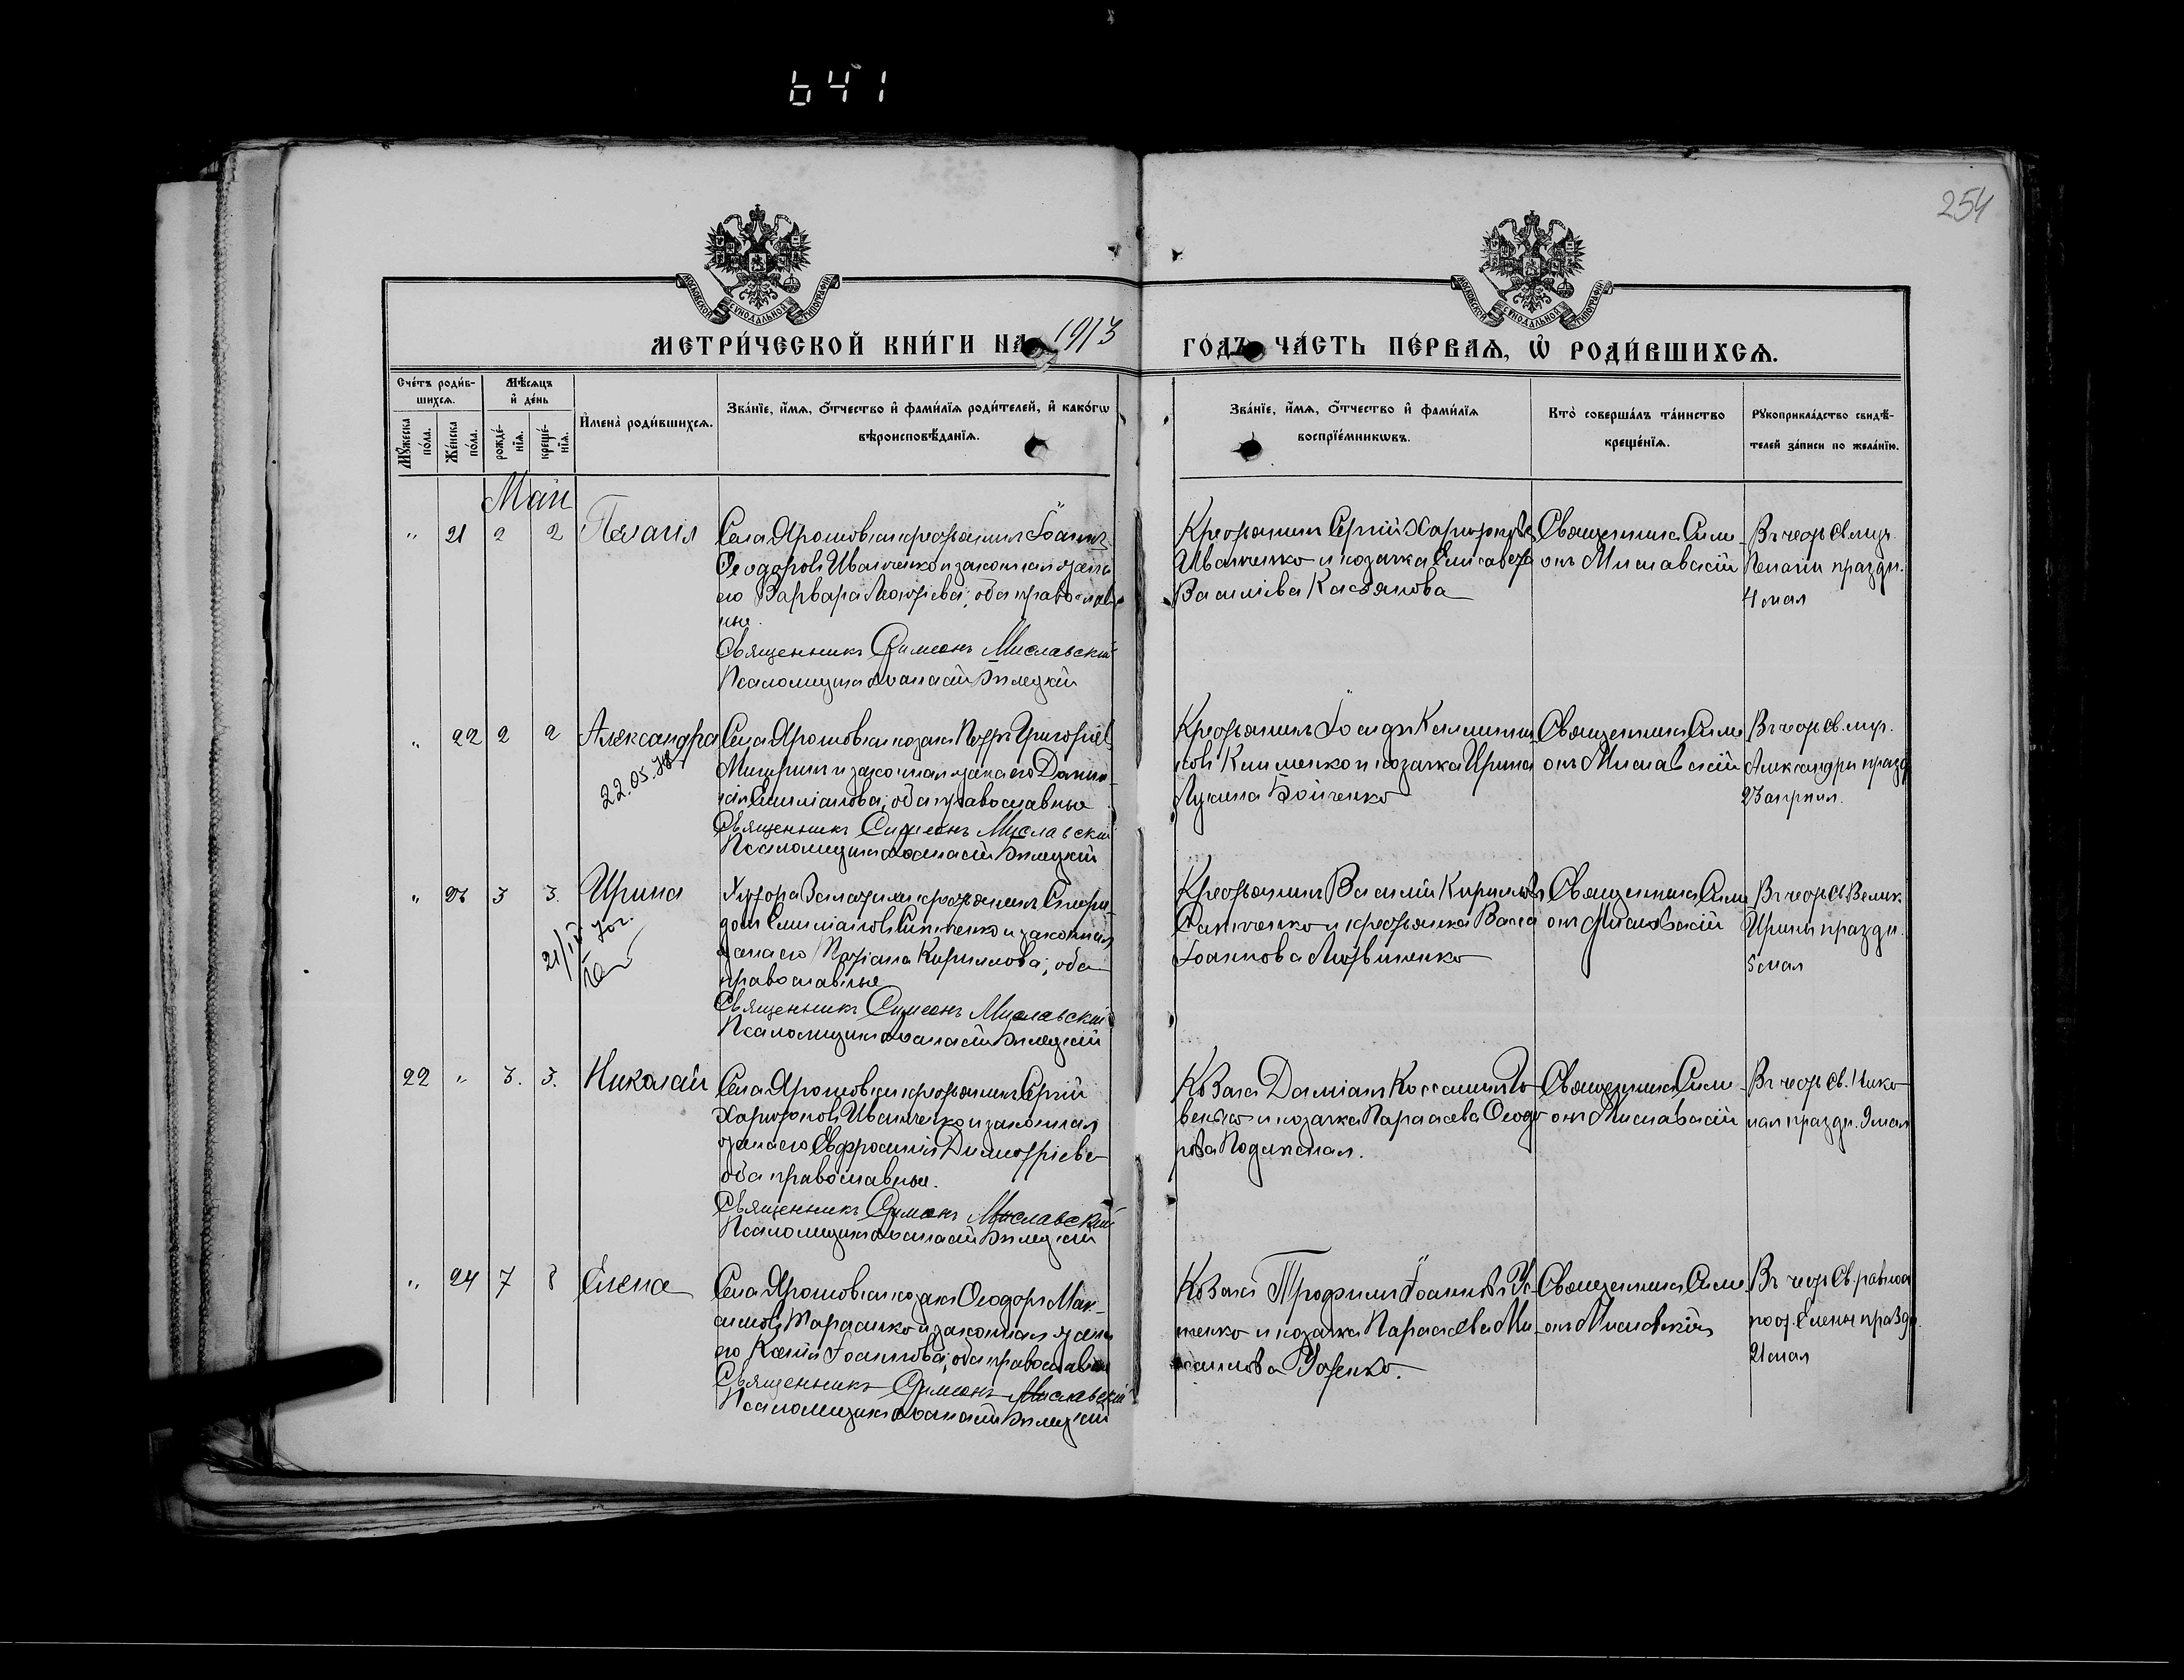 641
254
МОСКОВСКОЙ СѴНОДАЛЬНОЙ ТИПОГРАФІИ
МОСКОВСКОЙ СѴНОДАЛЬНОЙ ТИПОГРАФІИ
МЕТРИ́ЧЕСКОЙ КНИ́ГИ НА 1913 ГО́ДЪ ЧА́СТЬ ПЕ́РВАѦ, Ѡ҆ РОДИ́ВШИХСѦ.
Сче́тъ роди́в-
шихсѧ.
Мѣ́сѧцъ
и҆ де́нь
Мꙋ́жеска
по́ла.
Же́нска
по́ла.
рожде́-
нїѧ.
креще́-
нїѧ.
И҆мена̀ роди́вшихсѧ.
Зва́нїе, и҆́мѧ, ѻ҆́тчество и҆ фами́лїѧ роди́телей, и҆ како́гѡ
вѣроисповѣ́данїѧ.
Зва́нїе, и҆́мѧ, ѻ҆́тчество и҆ фами́лїѧ
воспрїе́мникѡвъ.
Кто̀ соверша́лъ та́инство
креще́нїѧ.
Рꙋкоприкла́дство свидѣ́-
телей за́писи по жела́нїю.
Май
" 21 2 2 Пелагія
Села Ярошовки крестьянинъ Іоаннъ
Ѳеодоровъ Иванченко и законная жена
его Варвара Леонтіева; оба православ-
ные.
Священникъ Симеонъ Миславскій
Псаломщикъ Аѳанасій Билецкій
Крестьянинъ Сергій Харитоновъ
Иванченко и козачка Елисавета
Василіева Касьянова
Священникъ Симе-
онъ Миславскій
Въ честь св. муц.
Пелагіи праздн.
4 мая
" 22 2 2 Александра
22.05.
Села Ярошовки козакъ Петръ Григоріев
и законная жена его
Емиліанова; оба православные
Священникъ Симеонъ Миславскій
Псаломщикъ Аѳанасій Билецкій
Крестьянинъ Іосифъ
Клименко и козачка Ирина
Лукина Бойченко
Священникъ Симе-
онъ Миславскій
Въ честь св. мус.
Александры празд
23 апрѣля.
" 23 3 3. Ирина
21/IV
Хутора крестьянинъ Спири-
донъ Емиліановъ и законная
жена его Татіана Кириллова; оба
православные
Священникъ Симеонъ Миславскій
Псаломщикъ Аѳанасій Билецкій
Крестьянинъ Василій Кирилловъ
и крестьянка Васса
Іоаннова Литвиненко
Священникъ Симе
онъ Миславскій
Въ честь св. Велик.
Ирины праздн.
5 мая
22 " 3. 3. Николай
Села Ярошовки крестьянинъ Сергій
Харитоновъ Иванченко и законная
жена его Евфросинія Димитріева
оба православные.
Священникъ Симеонъ Миславскій
Псаломщикъ Аѳанасій Билецкій
Козакъ Даміанъ
и козачка Параскева Ѳеодо
рова
Священникъ Симе-
онъ Миславскій
Въ честь св. Нико
лая праздн. 9 мая
" 24 7 8 Елена
Села Ярошовки козакъ Ѳеодоръ Мак-
симовъ Тарасенко и законная жена
его Ксенія Іоаннова; оба православные
Священникъ Симеонъ Миславскій
Псаломщикъ Аѳанасій Билецкій
Козакъ Трофимъ Іоанновъ Ус-
тенко и козачка Параскева Ми-
хаилова
Священникъ Симе-
онъ Миславскій
Въ честь Св. равноа
пост. Елены праздн.
21 мая